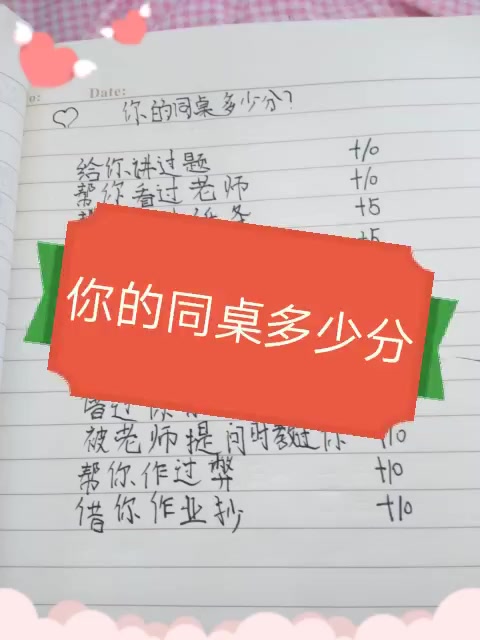 Date:
你的同桌多少分?
给你讲过题 +10
帮你看过老师 +10
+5
+5
你的同桌多少分
被老师提问时救过你 +10
帮你作过弊 +10
借你作业抄 +10